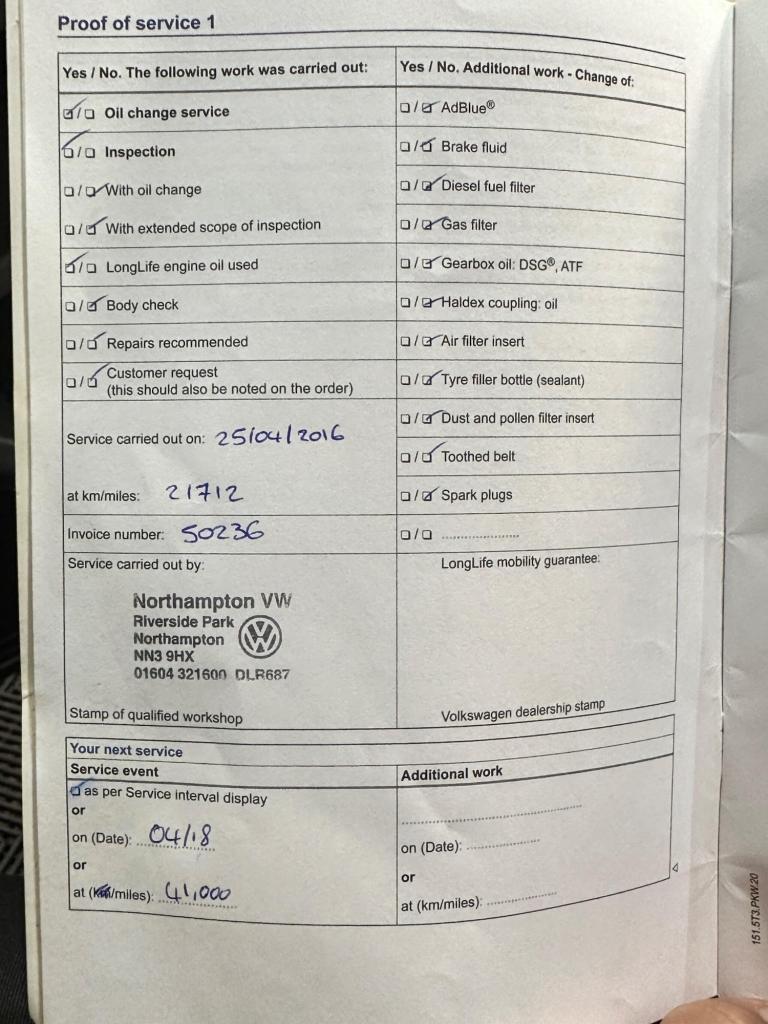 Proof of service 1
Yes / No. The following work was carried out:
☑/☐ Oil change service
☑/☐ Inspection
☐/☑ With oil change
☐/☑ With extended scope of inspection
☑/☐ LongLife engine oil used
☐/☑ Body check
☐/☑ Repairs recommended
☐/☑ Customer request
(this should also be noted on the order)
Service carried out on: 25/04/2016
at km/miles: 21712
Invoice number: 50236
Service carried out by:
Northampton VW
Riverside Park
Northampton
NN3 9HX
01604 321600 DLR687
Stamp of qualified workshop
Yes / No. Additional work - Change of:
☐/☑ AdBlue®
☐/☑ Brake fluid
☐/☑ Diesel fuel filter
☐/☑ Gas filter
☐/☑ Gearbox oil: DSG®, ATF
☐/☑ Haldex coupling: oil
☐/☑ Air filter insert
☐/☑ Tyre filler bottle (sealant)
☐/☑ Dust and pollen filter insert
☐/☑ Toothed belt
☐/☑ Spark plugs
☐/☐ ....................
LongLife mobility guarantee:
Volkswagen dealership stamp
Your next service
Service event
☑ as per Service interval display
or
on (Date): 04/18
or
at (km/miles): 41,000
Additional work
..............................................
on (Date): ..................
or
at (km/miles): ..................
151.5T3.PKW.20